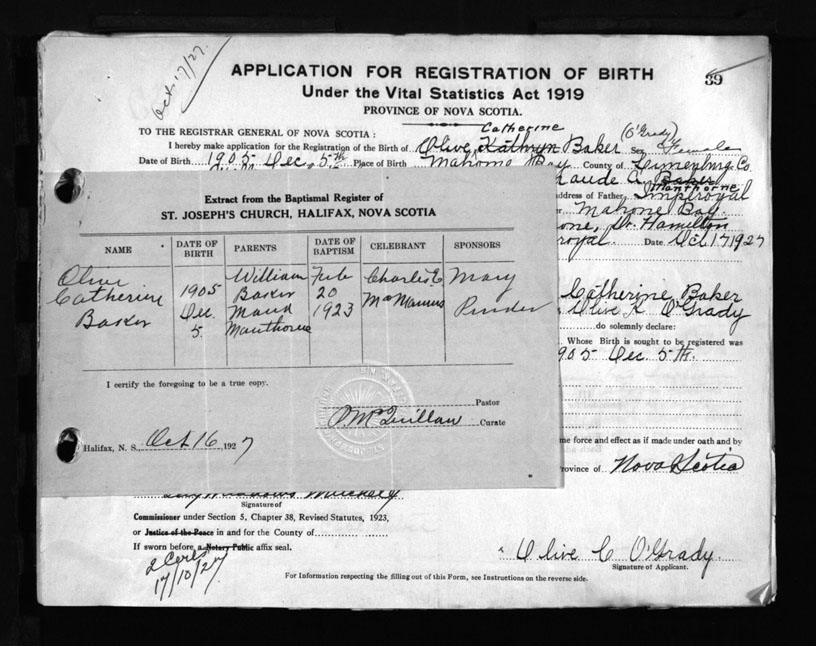 Oct. 17/27.
39
APPLICATION FOR REGISTRATION OF BIRTH
Under the Vital Statistics Act 1919
PROVINCE OF NOVA SCOTIA.
TO THE REGISTRAR GENERAL OF NOVA SCOTIA:
Catherine (O'Grady)
I hereby make application for the Registration of the Birth of Olive Kathryn Baker Sex Female
Date of Birth 1905 Dec. 5th Place of Birth Mahone Bay County of Lunenburg Co.
aude A. Baker
Manthorne
ddress of Father, Imperoyal
Mahone Bay
one, Dr. Hamilton
royal. Date Oct 17 1927
Catherine Baker
Olive K. O'Grady
do solemnly declare:
Whose Birth is sought to be registered was
905 Dec 5th.
me force and effect as if made under oath and by
rovince of Nova Scotia
Extract from the Baptismal Register of
ST. JOSEPH'S CHURCH, HALIFAX, NOVA SCOTIA
NAME DATE OF BIRTH PARENTS DATE OF BAPTISM CELEBRANT SPONSORS
Olive William Feb Charles E. Mary
Catherine 1905 Baker 20 McManus Pinder
Baker Dec. Maud 1923
5. Manthorne
I certify the foregoing to be a true copy.
Pastor
McQuillan Curate
Halifax, N. S., Oct 16, 1927
Signature of
Commissioner under Section 5, Chapter 38, Revised Statutes, 1923,
or Justice of the Peace in and for the County of
If sworn before a Notary Public affix seal.
2 Certs
17/10/27
Olive C O'Grady
Signature of Applicant.
For Information respecting the filling out of this Form, see Instructions on the reverse side.